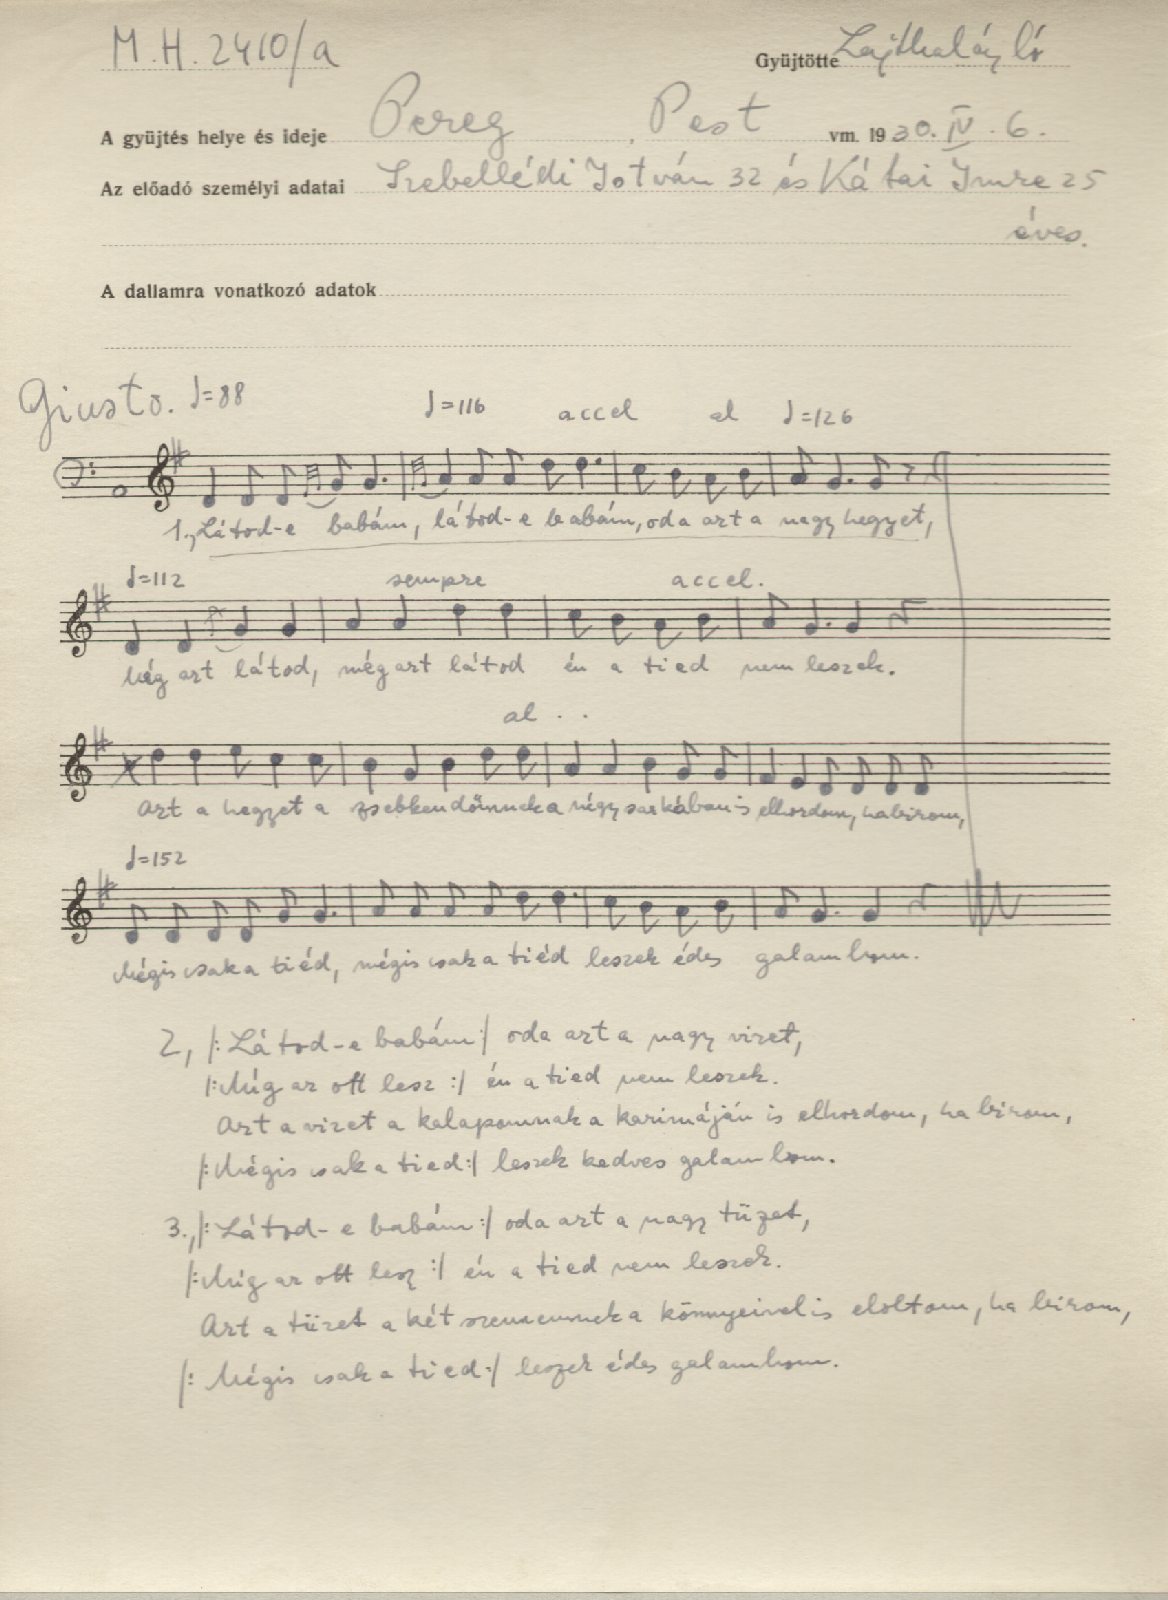 M.H. 2410/a
Gyűjtötte Lajtha László
A gyűjtés helye és ideje Pereg, Pest vm. 1930. IV. 6.
Az előadó személyi adatai Szebellédi István 32 és Kátai Imre 25
éves.
A dallamra vonatkozó adatok
Giusto. ♩=88 ♩=116 accel al ♩=126
1., Látod-e babám, látod-e babám, oda azt a nagy hegyet,
♩=112 sempre accel.
Még azt látod, még azt látod én a tied nem leszek.
al . .
Azt a hegyet a zsebkendőmnek a négy sarkában is elhordom, ha birom,
♩=152
Mégis csak a tiéd, mégis csak a tiéd leszek édes galambom.
2, /: Látod-e babám :/ oda azt a nagy vizet,
/: Míg az ott lesz :/ én a tied nem leszek.
Azt a vizet a kalapomnak a karimáján is elhordom, ha birom,
/: Mégis csak a tied :/ leszek kedves galambom.
3., /: Látod-e babám :/ oda azt a nagy tüzet,
/: Míg az ott lesz :/ én a tied nem leszek.
Azt a tüzet a két szememnek a könnyeivel is eloltom, ha birom,
/: Mégis csak a tied :/ leszek édes galambom.